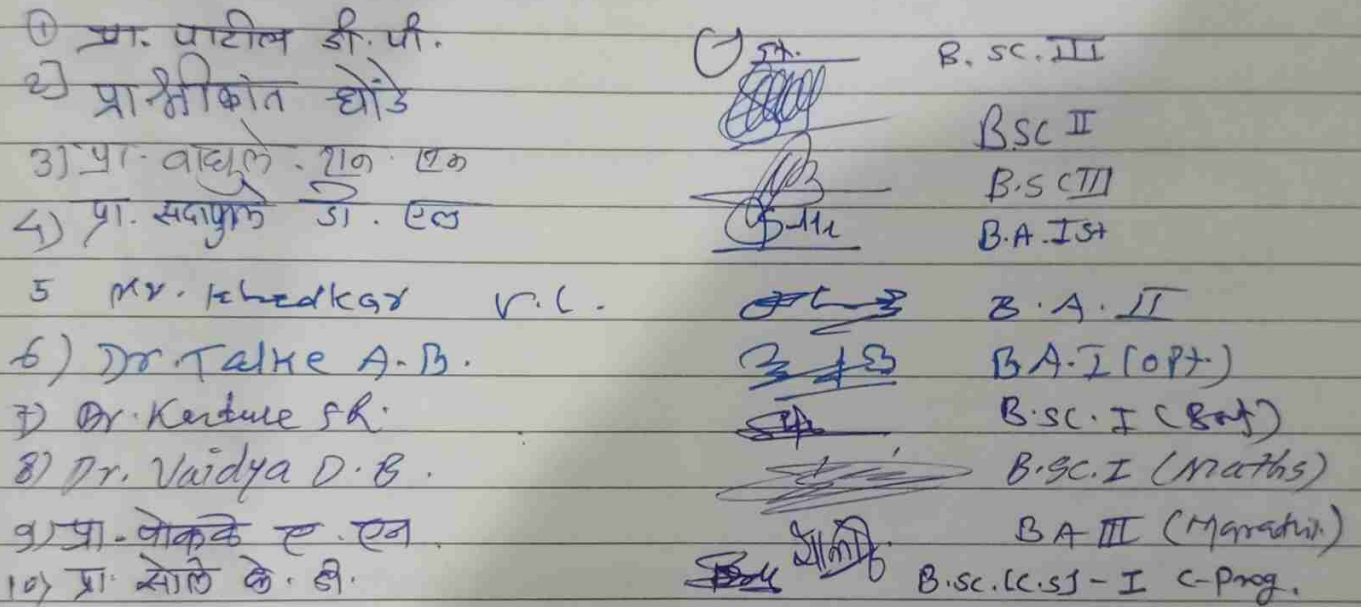 ① प्रा. पाटील डी. पी. B. SC. III
2] प्रा. श्रीकांत घोंडे BSC II
3) प्रा. वाघुले . एन . एन B.SC III
4) प्रा. सदाफुले डी . एल B.A. Ist
5 Mr. Khedkar V.C. B.A. II
6) Dr. Talke A.B. B.A. I (opt.)
7) Dr. Kardule S.R. B.SC. I
8) Dr. Vaidya D.B. B.SC. I (Maths)
9) प्रा. पोकळे ए . एन . BA III (Marathi)
10) प्रा. सोले के. डी. B.sc.[C.S] - I C-Prog.